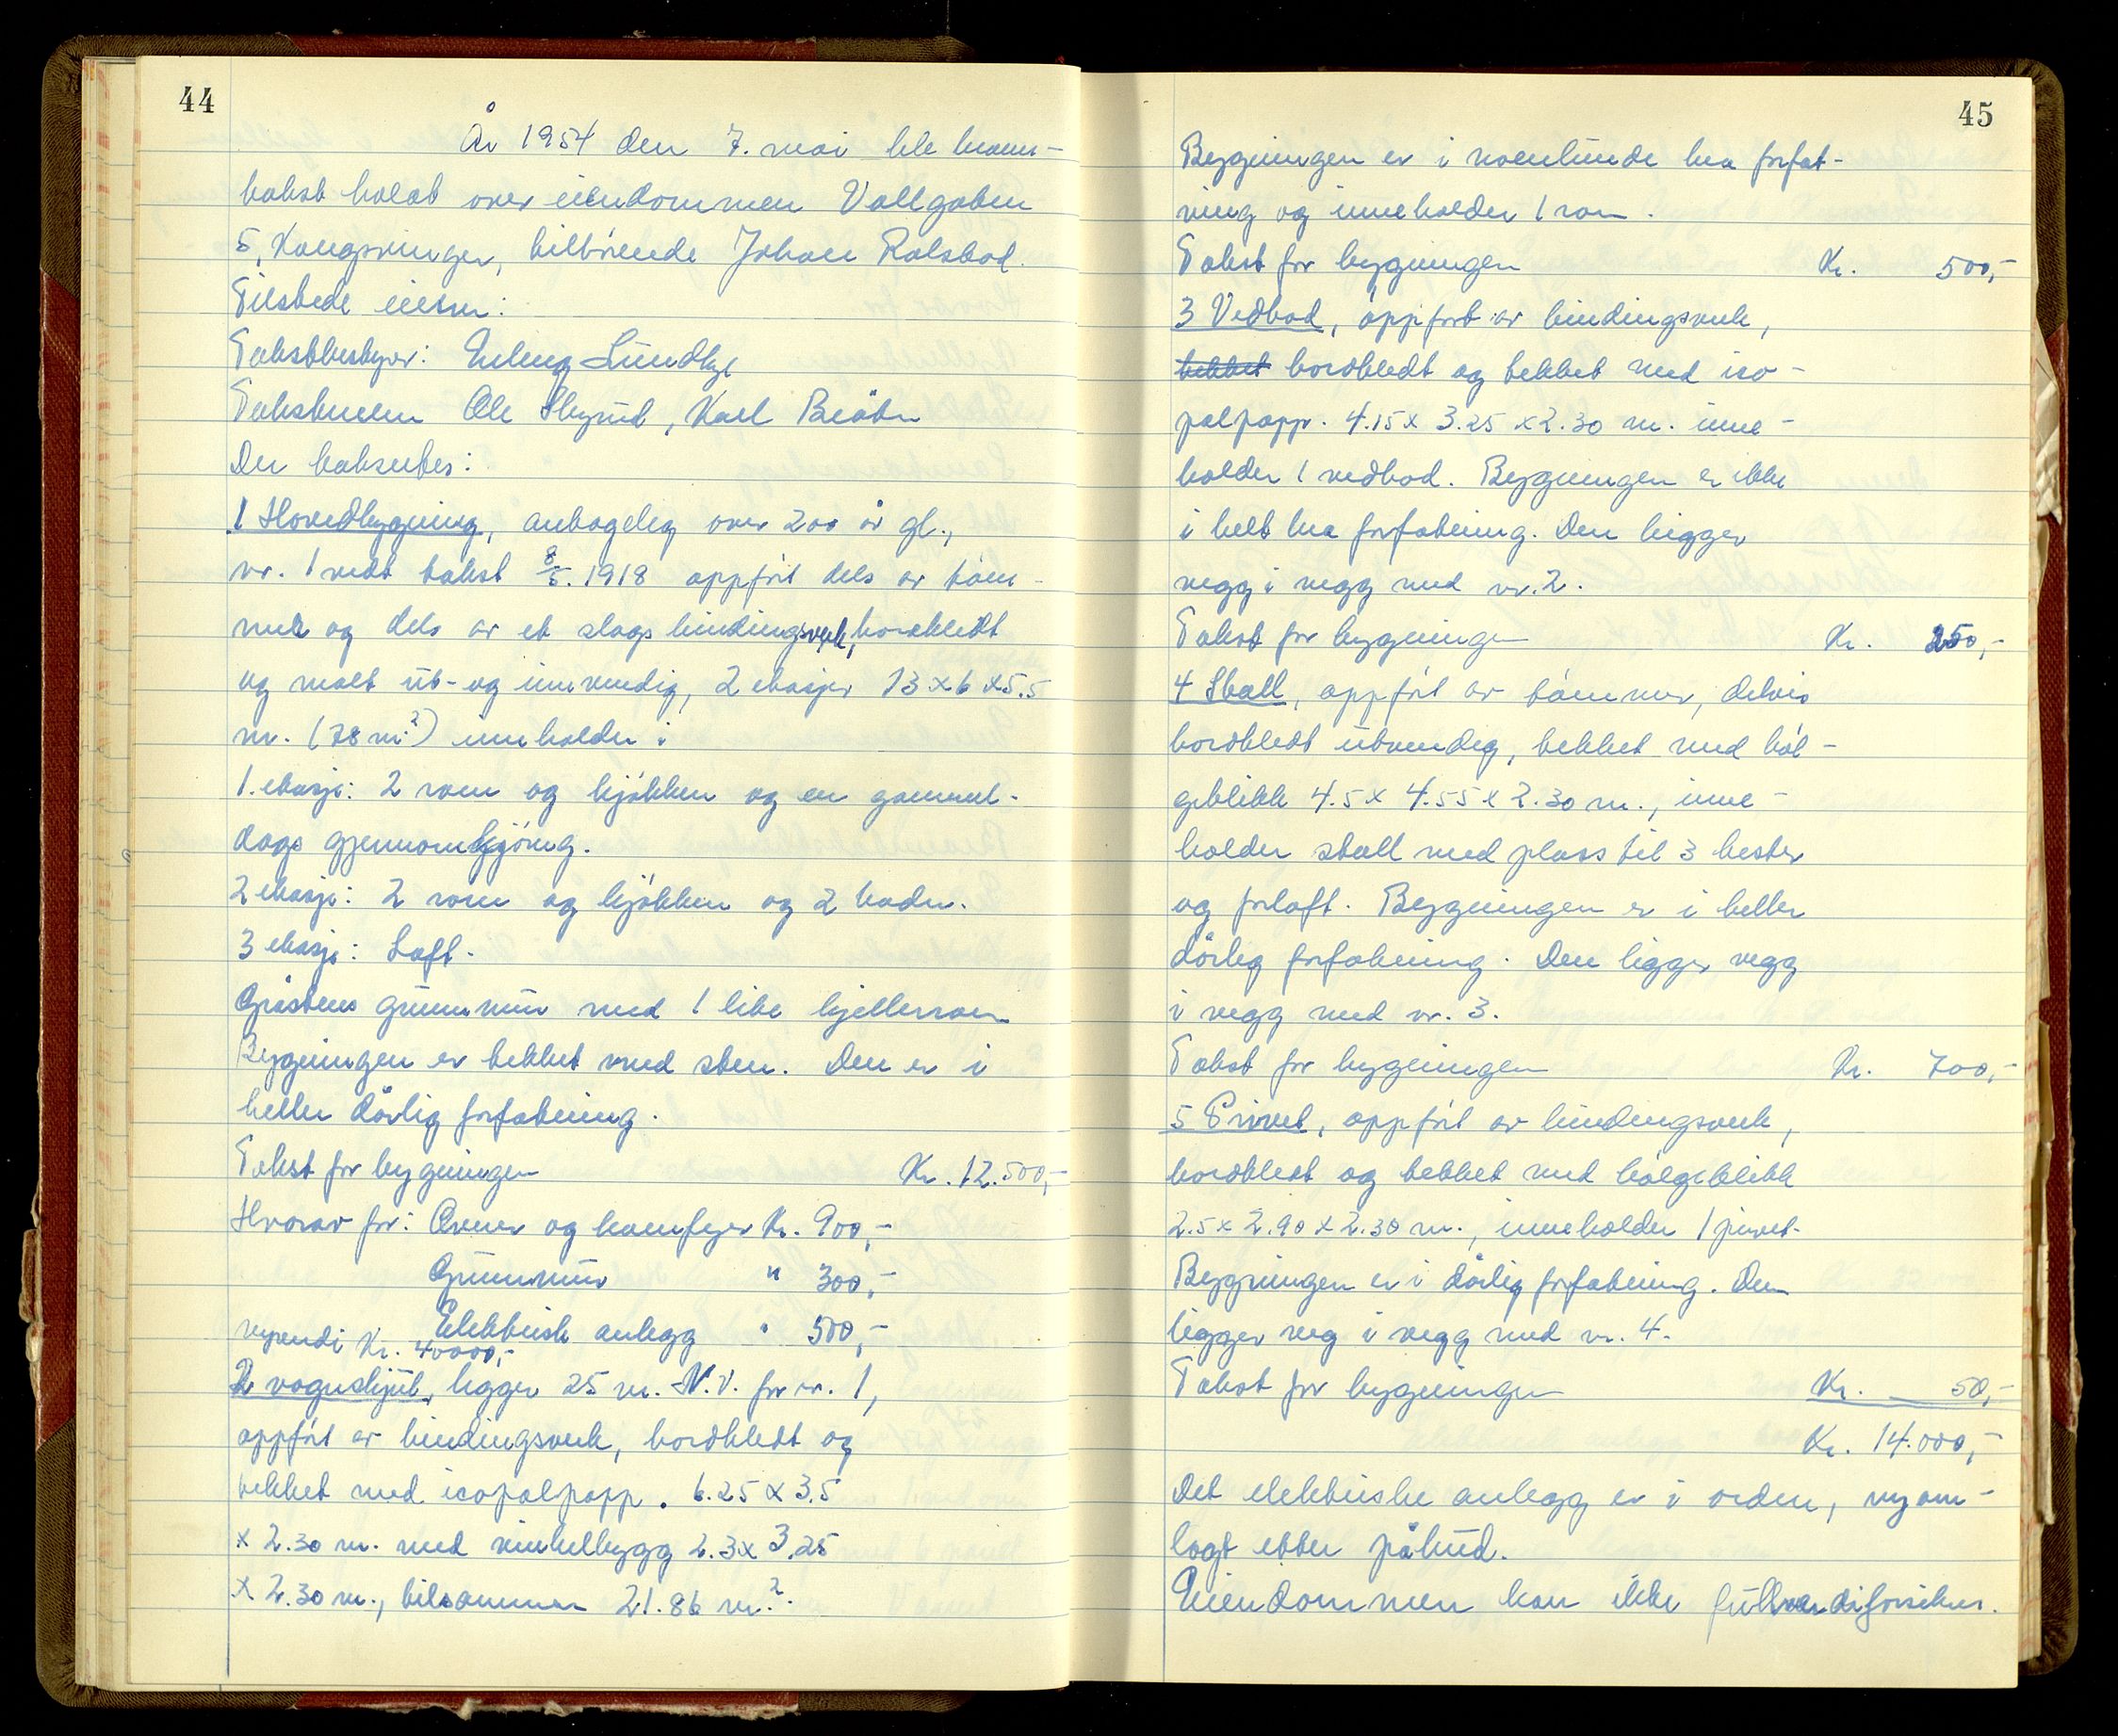 44
År 1954 den 7. mai ble brann-
takst holdt over eiendommen Vollgaten
5, Kongsvinger, tilhörende Johan Rolstad.
Tilstede eieren:
Takstbestyrer: Erling Lundby
Takstmenn Ole Skyrud, Karl Bråten
Der takseertes:
1 Hovedbygning, antagelig over 200 år gl.,
nr. 1 vedt takst 8/5. 1918 oppfört dels av töm-
mer og dels av et slags bindingsverk, bordkledt
og malt ut- og innvendig, 2 etasjer 13 x 6 x 5.5
m. (78 m.²) inneholder i
1. etasje: 2 rom og kjökken og en gammel-
dags gjennomkjöring.
2 etasje: 2 rom og kjökken og 2 boder.
3 etasje: Loft.
Gråstens grunnmur med 1 lite kjellerrom
Bygningen er tekket med sten. Den er i
heller dårlig forfatning.
Takst for bygningen Kr. 12.500,-
Hvorav for: Ovner og komfyrer Kr. 900,-
Grunnmur " 300,-
Elektrisk anlegg " 500,-
nyverdi Kr. 40000,-
2 vognskjul, ligger 25 m. N.V. for nr. 1,
oppfört av bindingsverk, bordkledt og
tekket med icopalpapp. 6.25 x 3.5
x 2.30 m. med vinkelbygg 2.3 x 3.25
x 2.30 m., tilsammen 21.86 m.².
45
Bygningen er i noenlunde bra forfat-
ning og inneholder 1 rom.
Takst for bygningen Kr. 500,-
3 Vedbod, oppfört av bindingsverk,
tekket bordkledt og tekket med ico-
palpapp. 4.15 x 3.25 x 2.30 m. inne-
holder 1 vedbod. Bygningen er ikke
i helt bra forfatning. Den ligger
vegg i vegg med nr. 2.
Takst for bygningen Kr. 250,-
4 Stall, oppfört av tömmer, delvis
bordkledt utvendig, tekket med böl-
geblikk 4.5 x 4.55 x 2.30 m., inne-
holder stall med plass til 3 hester
og forloft. Bygningen er i heller
dårlig forfatning. Den ligger vegg
i vegg med nr. 3.
Takst for bygningen Kr. 700,-
5 Privet, oppfört av bindingsverk,
bordkledt og tekket med bölgeblikk
2.5 x 2.90 x 2.30 m., inneholder 1 privet.
Bygningen er i dårlig forfatning. Den
ligger veg i vegg med nr. 4.
Takst for bygningen Kr. 50,-
Kr. 14.000,-
Det elektriske anlegg er i orden, nyom-
lagt etter påbud.
Eiendommen kan ikke fullverdiforsikres.